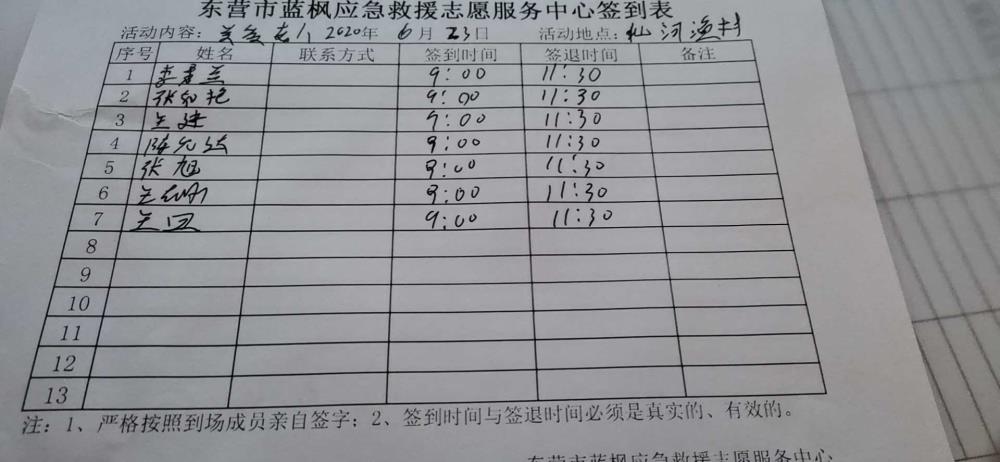 东营市蓝枫应急救援志愿服务中心签到表
活动内容：关爱老人 2020年 6月 23日 活动地点：仙河渔村
序号 姓名 联系方式 签到时间 签退时间 备注
1 9:00 11:30
2 张 9:00 11:30
3 王建 9:00 11:30
4 陈 9:00 11:30
5 张旭 9:00 11:30
6 王 9:00 11:30
7 王 9:00 11:30
8
9
10
11
12
13
注：1、严格按照到场成员亲自签字；2、签到时间与签退时间必须是真实的、有效的。
东营市蓝枫应急救援志愿服务中心